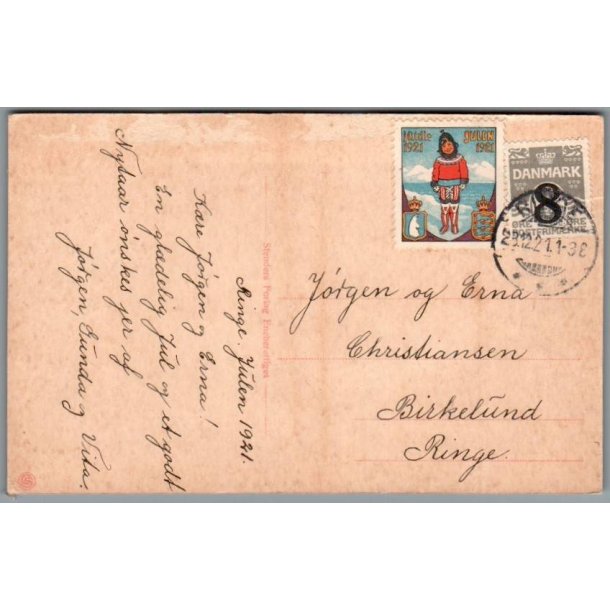 Ringe. Julen 1921.
Kære Jørgen og Erna!
En glædelig Jul og et godt
Nytaar ønskes jer af
Jørgen, Gunda og Vita.
JULEN
1921 1921
DANMARK
8
FRIMÆRKE
.12.21.1-3E
Jørgen og Erna
Christiansen
Birkelund
Ringe.